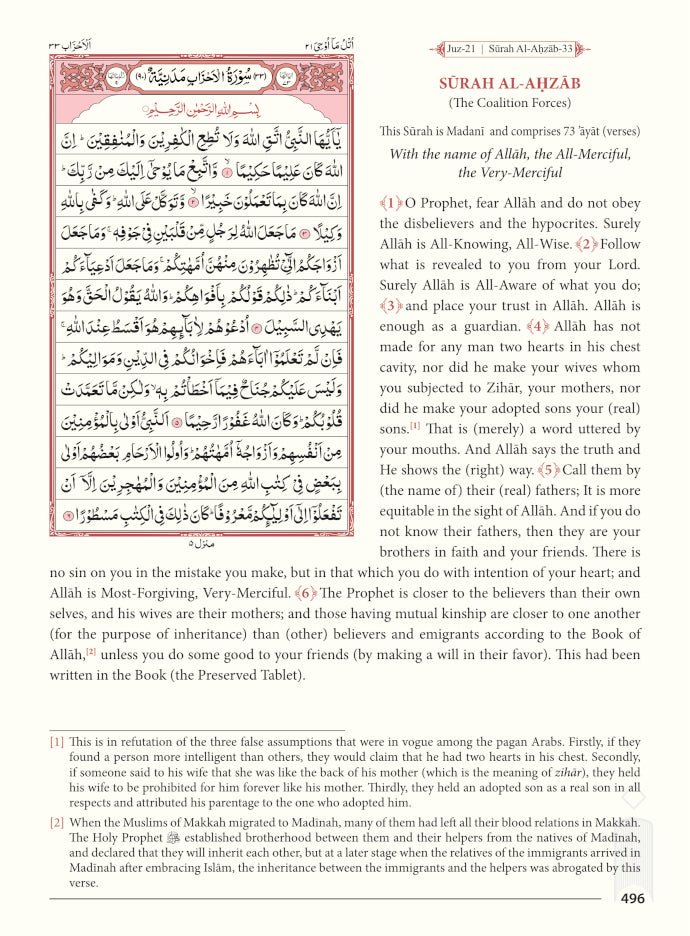 اَلْاَحْزَاب ٣٣
اُتْلُ مَآ اُوْحِیَ ٢١
(٣٣) سُوْرَةُ الْاَحْزَابِ مَدَنِيَّةٌ (٩٠)
بِسْمِ اللّٰهِ الرَّحْمٰنِ الرَّحِيْمِ
يٰۤاَيُّهَا النَّبِيُّ اتَّقِ اللّٰهَ وَلَا تُطِعِ الْكٰفِرِيْنَ وَالْمُنٰفِقِيْنَ ؕ اِنَّ
اللّٰهَ كَانَ عَلِيْمًا حَكِيْمًا ۙ﴿١﴾ وَّاتَّبِعْ مَا يُوْحٰۤى اِلَيْكَ مِنْ رَّبِّكَ ؕ
اِنَّ اللّٰهَ كَانَ بِمَا تَعْمَلُوْنَ خَبِيْرًا ۙ﴿٢﴾ وَّتَوَكَّلْ عَلَى اللّٰهِ ؕ وَكَفٰى بِاللّٰهِ
وَكِيْلًا ﴿٣﴾ مَا جَعَلَ اللّٰهُ لِرَجُلٍ مِّنْ قَلْبَيْنِ فِيْ جَوْفِهٖ ۚ وَمَا جَعَلَ
اَزْوَاجَكُمُ الّٰٓـِٔيْ تُظٰهِرُوْنَ مِنْهُنَّ اُمَّهٰتِكُمْ ۚ وَمَا جَعَلَ اَدْعِيَآءَكُمْ
اَبْنَآءَكُمْ ؕ ذٰلِكُمْ قَوْلُكُمْ بِاَفْوَاهِكُمْ ؕ وَاللّٰهُ يَقُوْلُ الْحَقَّ وَهُوَ
يَهْدِي السَّبِيْلَ ﴿٤﴾ اُدْعُوْهُمْ لِاٰبَآئِهِمْ هُوَ اَقْسَطُ عِنْدَ اللّٰهِ ۚ
فَاِنْ لَّمْ تَعْلَمُوْۤا اٰبَآءَهُمْ فَاِخْوَانُكُمْ فِي الدِّيْنِ وَمَوَالِيْكُمْ ؕ
وَلَيْسَ عَلَيْكُمْ جُنَاحٌ فِيْمَاۤ اَخْطَاْتُمْ بِهٖ ۙ وَلٰكِنْ مَّا تَعَمَّدَتْ
قُلُوْبُكُمْ ؕ وَكَانَ اللّٰهُ غَفُوْرًا رَّحِيْمًا ﴿٥﴾ اَلنَّبِيُّ اَوْلٰى بِالْمُؤْمِنِيْنَ
مِنْ اَنْفُسِهِمْ وَاَزْوَاجُهٗۤ اُمَّهٰتُهُمْ ؕ وَاُولُوا الْاَرْحَامِ بَعْضُهُمْ اَوْلٰى
بِبَعْضٍ فِيْ كِتٰبِ اللّٰهِ مِنَ الْمُؤْمِنِيْنَ وَالْمُهٰجِرِيْنَ اِلَّاۤ اَنْ
تَفْعَلُوْۤا اِلٰۤى اَوْلِيٰٓئِكُمْ مَّعْرُوْفًا ؕ كَانَ ذٰلِكَ فِي الْكِتٰبِ مَسْطُوْرًا ﴿٦﴾
منزل ٥
Juz-21 | Sūrah Al-Aḥzāb-33
SŪRAH AL-AḤZĀB
(The Coalition Forces)
This Sūrah is Madanī and comprises 73 ’āyāt (verses)
With the name of Allāh, the All-Merciful,
the Very-Merciful
﴾1﴿ O Prophet, fear Allāh and do not obey
the disbelievers and the hypocrites. Surely
Allāh is All-Knowing, All-Wise. ﴾2﴿ Follow
what is revealed to you from your Lord.
Surely Allāh is All-Aware of what you do;
﴾3﴿ and place your trust in Allāh. Allāh is
enough as a guardian. ﴾4﴿ Allāh has not
made for any man two hearts in his chest
cavity, nor did he make your wives whom
you subjected to Zihār, your mothers, nor
did he make your adopted sons your (real)
sons.[1] That is (merely) a word uttered by
your mouths. And Allāh says the truth and
He shows the (right) way. ﴾5﴿ Call them by
(the name of) their (real) fathers; It is more
equitable in the sight of Allāh. And if you do
not know their fathers, then they are your
brothers in faith and your friends. There is
no sin on you in the mistake you make, but in that which you do with intention of your heart; and
Allāh is Most-Forgiving, Very-Merciful. ﴾6﴿ The Prophet is closer to the believers than their own
selves, and his wives are their mothers; and those having mutual kinship are closer to one another
(for the purpose of inheritance) than (other) believers and emigrants according to the Book of
Allāh,[2] unless you do some good to your friends (by making a will in their favor). This had been
written in the Book (the Preserved Tablet).
[1] This is in refutation of the three false assumptions that were in vogue among the pagan Arabs. Firstly, if they
found a person more intelligent than others, they would claim that he had two hearts in his chest. Secondly,
if someone said to his wife that she was like the back of his mother (which is the meaning of zihār), they held
his wife to be prohibited for him forever like his mother. Thirdly, they held an adopted son as a real son in all
respects and attributed his parentage to the one who adopted him.
[2] When the Muslims of Makkah migrated to Madīnah, many of them had left all their blood relations in Makkah.
The Holy Prophet ﷺ established brotherhood between them and their helpers from the natives of Madīnah,
and declared that they will inherit each other, but at a later stage when the relatives of the immigrants arrived in
Madīnah after embracing Islām, the inheritance between the immigrants and the helpers was abrogated by this
verse.
496